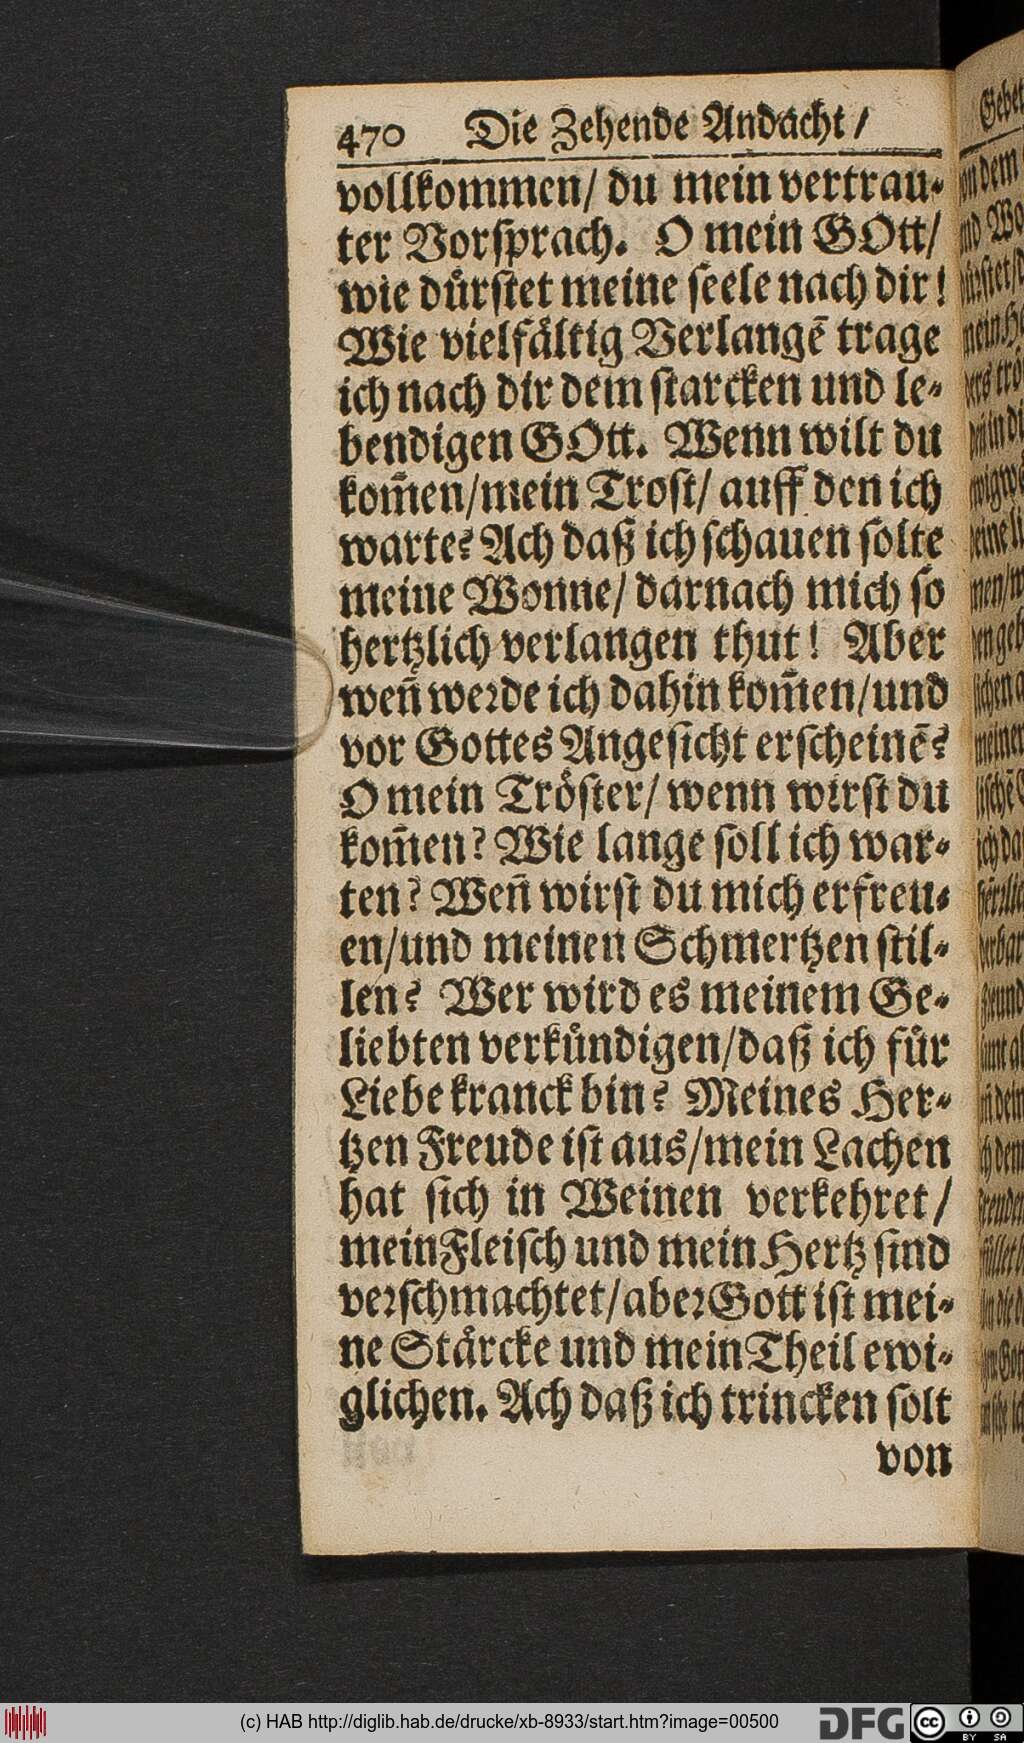 470 Die Zehende Andacht /
vollkommen / du mein vertrau-
ter Vorsprach. O mein GOtt /
wie duͤrstet meine seele nach dir!
Wie vielfaͤltig Verlangē trage
ich nach dir dem starcken und le-
bendigen GOtt. Wenn wilt du
kom̄en / mein Trost / auff den ich
warte? Ach daß ich schauen solte
meine Wonne / darnach mich so
hertzlich verlangen thut! Aber
wen̄ werde ich dahin kom̄en / und
vor Gottes Angesicht erscheinē?
O mein Troͤster / wenn wirst du
kom̄en? Wie lange soll ich war-
ten? Wen̄ wirst du mich erfreu-
en / und meinen Schmertzen stil-
len? Wer wird es meinem Ge-
liebten verkuͤndigen / daß ich fuͤr
Liebe kranck bin? Meines Her-
tzen Freude ist aus / mein Lachen
hat sich in Weinen verkehret /
mein Fleisch und mein Hertz sind
verschmachtet / aber Gott ist mei-
ne Staͤrcke und mein Theil ewi-
glichen. Ach daß ich trincken solt
von
(c) HAB http://diglib.hab.de/drucke/xb-8933/start.htm?image=00500
DFG cc BY SA